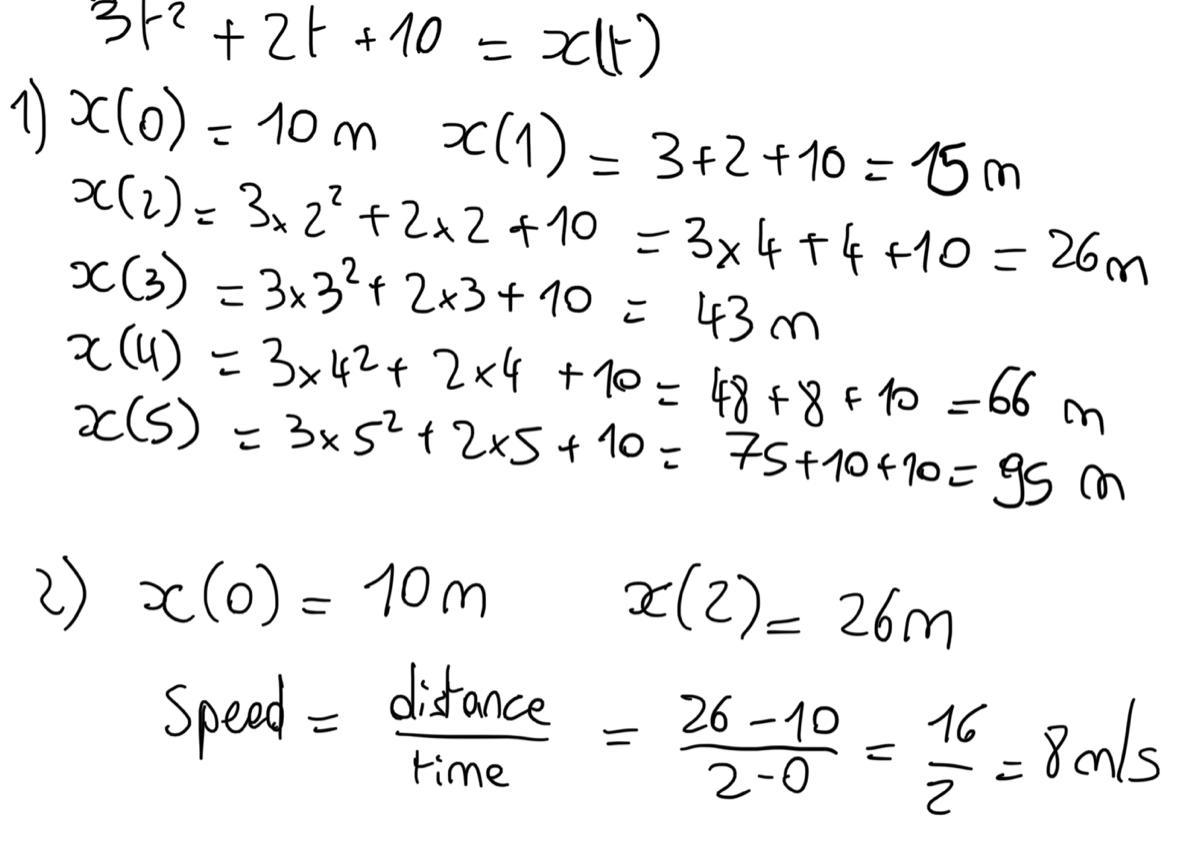 3t² + 2t + 10 = x(t)
1) x(0) = 10 m x(1) = 3+2+10 = 15 m
x(2) = 3×2² + 2×2 + 10 = 3×4 + 4 + 10 = 26 m
x(3) = 3×3² + 2×3 + 10 = 43 m
x(4) = 3×4² + 2×4 + 10 = 48 + 8 + 10 = 66 m
x(5) = 3×5² + 2×5 + 10 = 75+10+10 = 95 m
2) x(0) = 10 m x(2) = 26 m
Speed = distance/time = (26-10)/(2-0) = 16/2 = 8 m/s